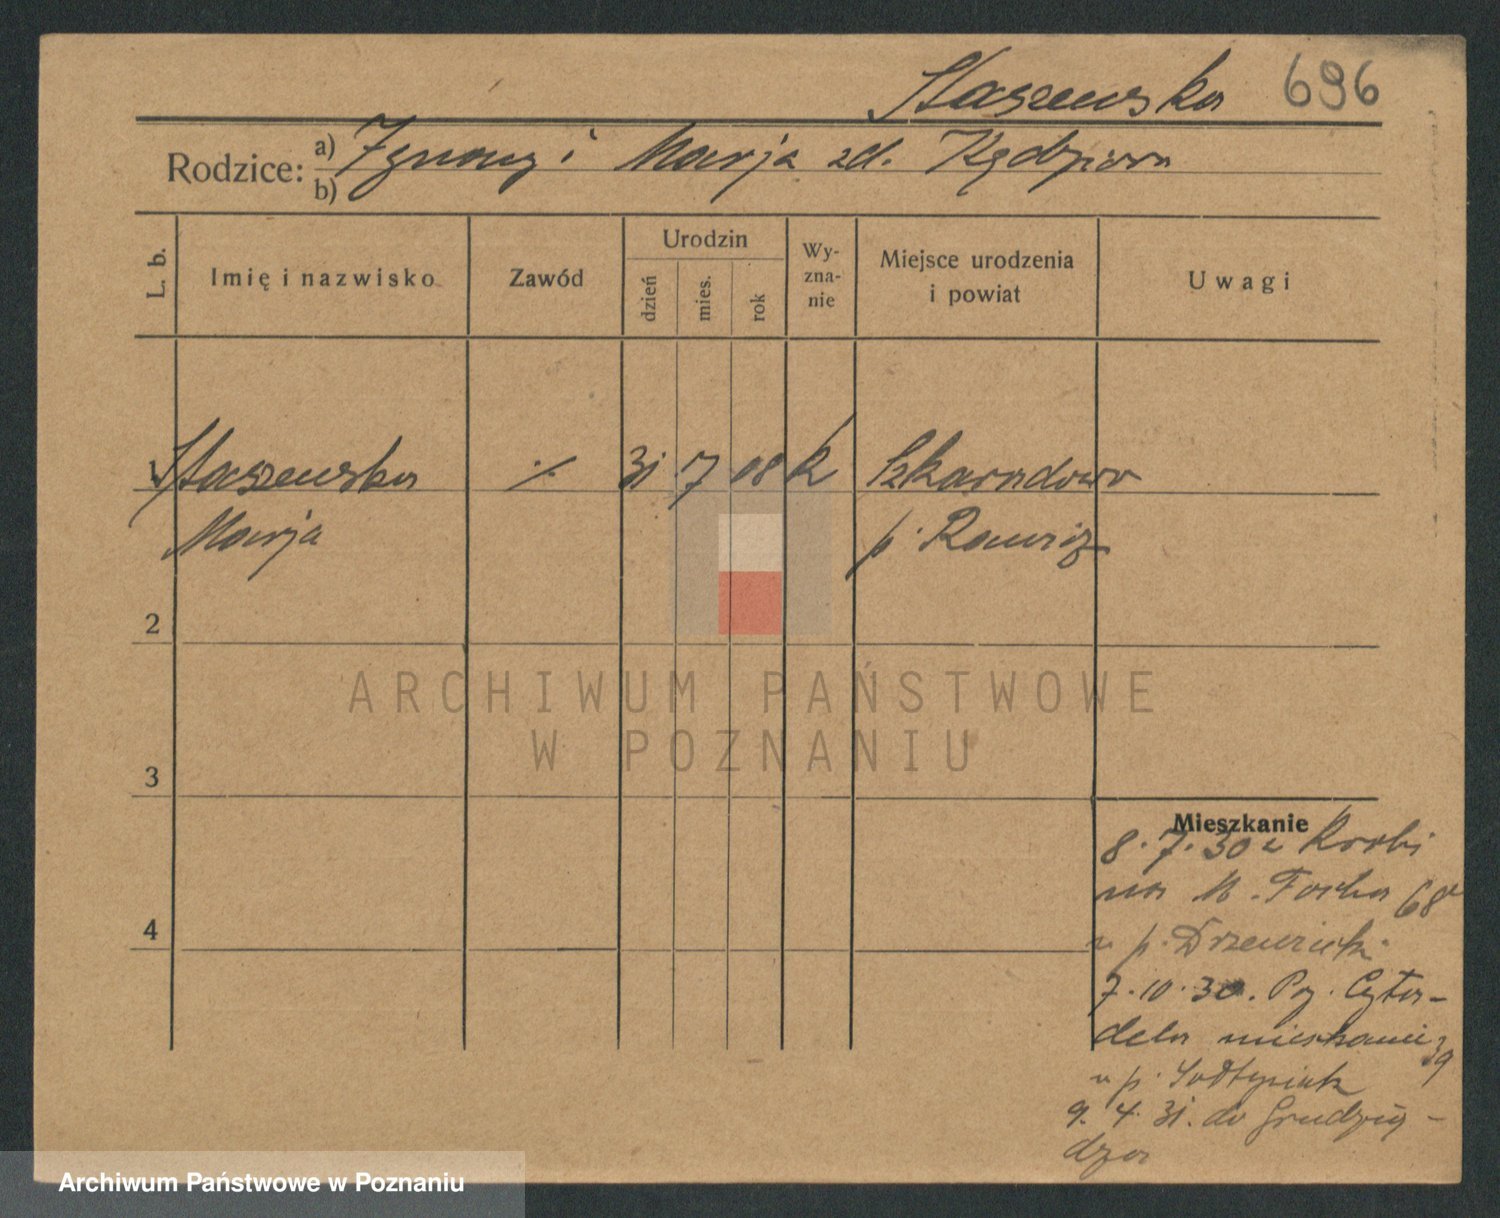 Staszewska 696
Rodzice: a) Ignacy i Marja zd. Kędziora
b)
L. b.
Imię i nazwisko
Zawód
Urodzin
dzień
mies.
rok
Wy-
zna-
nie
Miejsce urodzenia
i powiat
Uwagi
1 Staszewska ./. 31 7 08 k Szkaradowo
Marja p. Rawicz
2
3
4
Mieszkanie
8.7.30 z Krobi
na M. Focha 68
u p. Drzewiecki
7.10.30. Pozn. Cyta-
dela mieszkanie 39
u p.
9.4.31. do Grudzią-
dza
ARCHIWUM PAŃSTWOWE
W POZNANIU
Archiwum Państwowe w Poznaniu